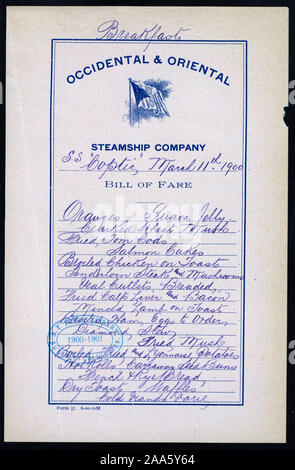 Breakfast
OCCIDENTAL & ORIENTAL
STEAMSHIP COMPANY
SS "Coptic", March 11th 1900
BILL OF FARE
Oranges, Guava Jelly
Cracked Wheat Mush
Fried Tom Cods
Salmon Cakes
Broiled Chicken on Toast
Tenderloin Steak and Mushrooms
Veal Cutlets, Breaded
Fried Calf's Liver and Bacon
Minced Lamb on Toast
Broiled Ham, Eggs to Order
Stew
Fried Mush
1900-1901
Fried and Lyonnaise Potatoes
Hot Rolls, Buns
French Rye Bread
Dry Toast Waffles
Cold
Form 37. 6-00-20M
alamy
Image ID: 2AA5Y64
www.alamy.com